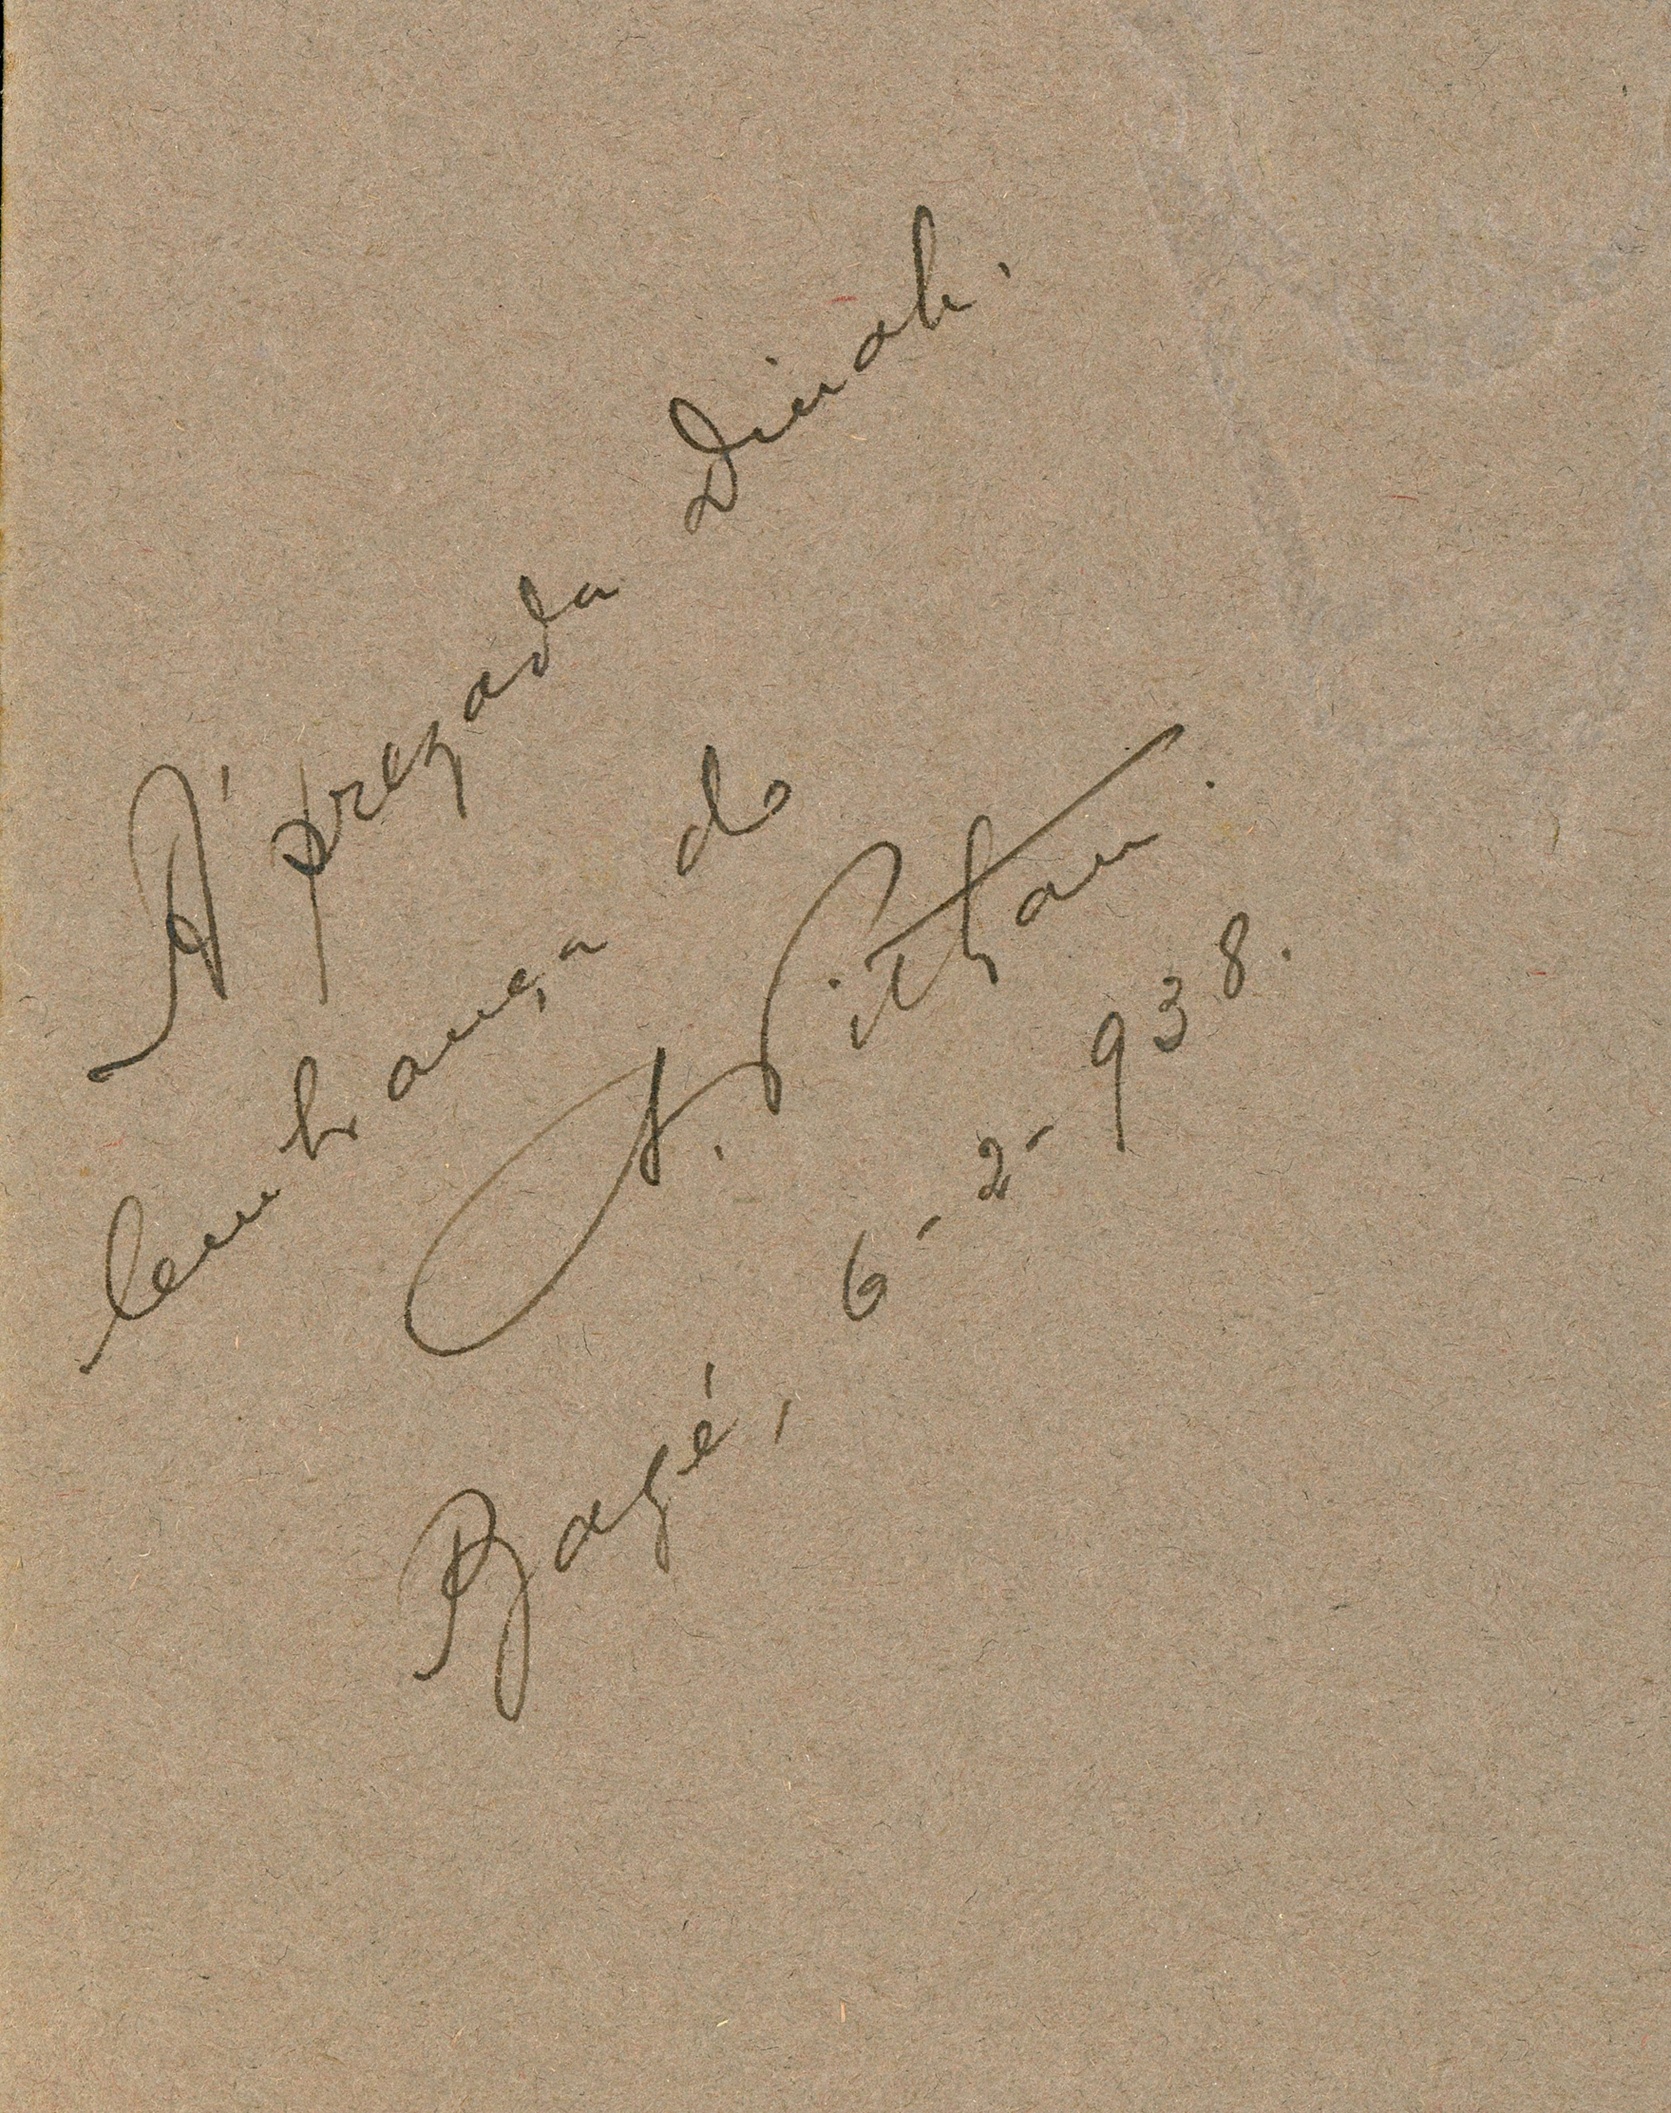 A' prezada Dinah.
lembrança do
A. Pithan.
Bagé, 6-2-938.